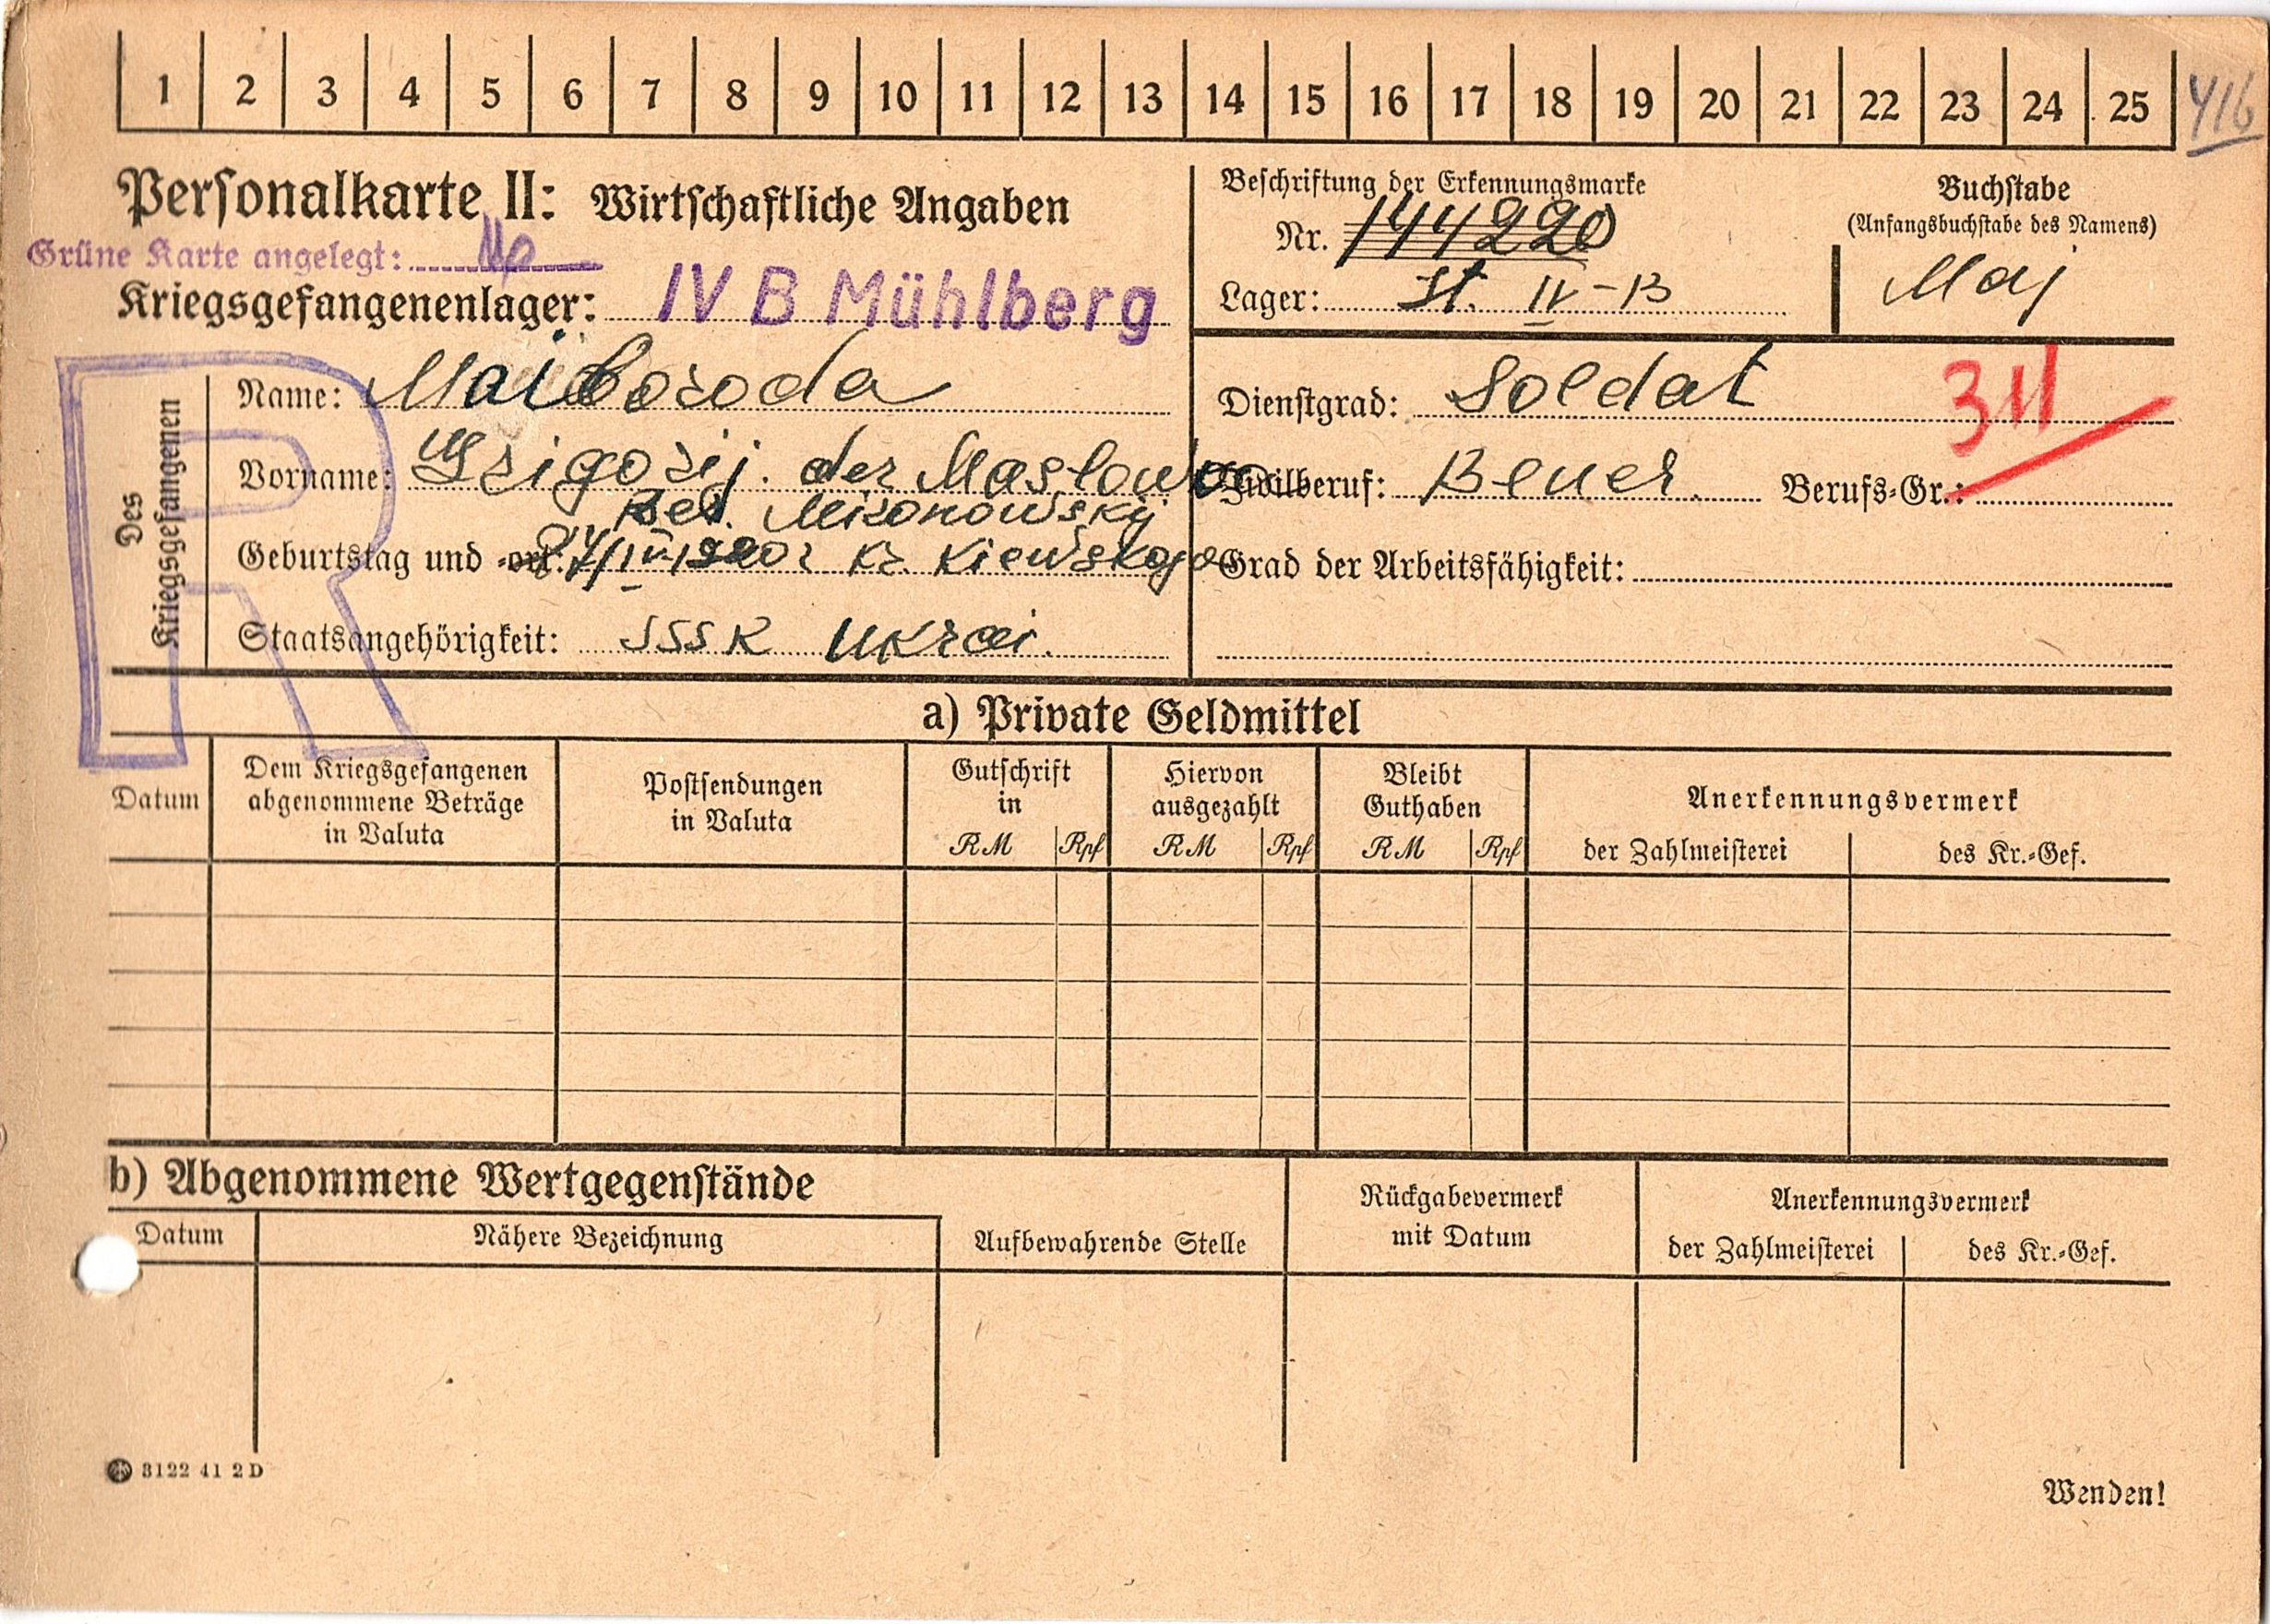 1 2 3 4 5 6 7 8 9 10 11 12 13 14 15 16 17 18 19 20 21 22 23 24 25 416
Personalkarte II: Wirtschaftliche Angaben
Grüne Karte angelegt:
Kriegsgefangenenlager: IV B Mühlberg
Beschriftung der Erkennungsmarke
Nr. 144220
Lager: St. IV-B
Buchstabe
(Anfangsbuchstabe des Namens)
Maj
Des Kriegsgefangenen
Name: Maiboroda
Vorname: Grigorij. der Maslowo
Bel. Mironowskij
Geburtstag und -ort: Kr. Kiewskoj
Staatsangehörigkeit: SSSR Ukrai.
Dienstgrad: Soldat
311
Zivilberuf: Bauer. Berufs-Gr.:
Grad der Arbeitsfähigkeit:
R
a) Private Geldmittel
Datum
Dem Kriegsgefangenen
abgenommene Beträge
in Valuta
Postsendungen
in Valuta
Gutschrift
in
RM Rpf
Hiervon
ausgezahlt
RM Rpf
Bleibt
Guthaben
RM Rpf
Anerkennungsvermerk
der Zahlmeisterei
des Kr.-Gef.
b) Abgenommene Wertgegenstände
Datum
Nähere Bezeichnung
Aufbewahrende Stelle
Rückgabevermerk
mit Datum
Anerkennungsvermerk
der Zahlmeisterei
des Kr.-Gef.
3122 41 2 D
Wenden!